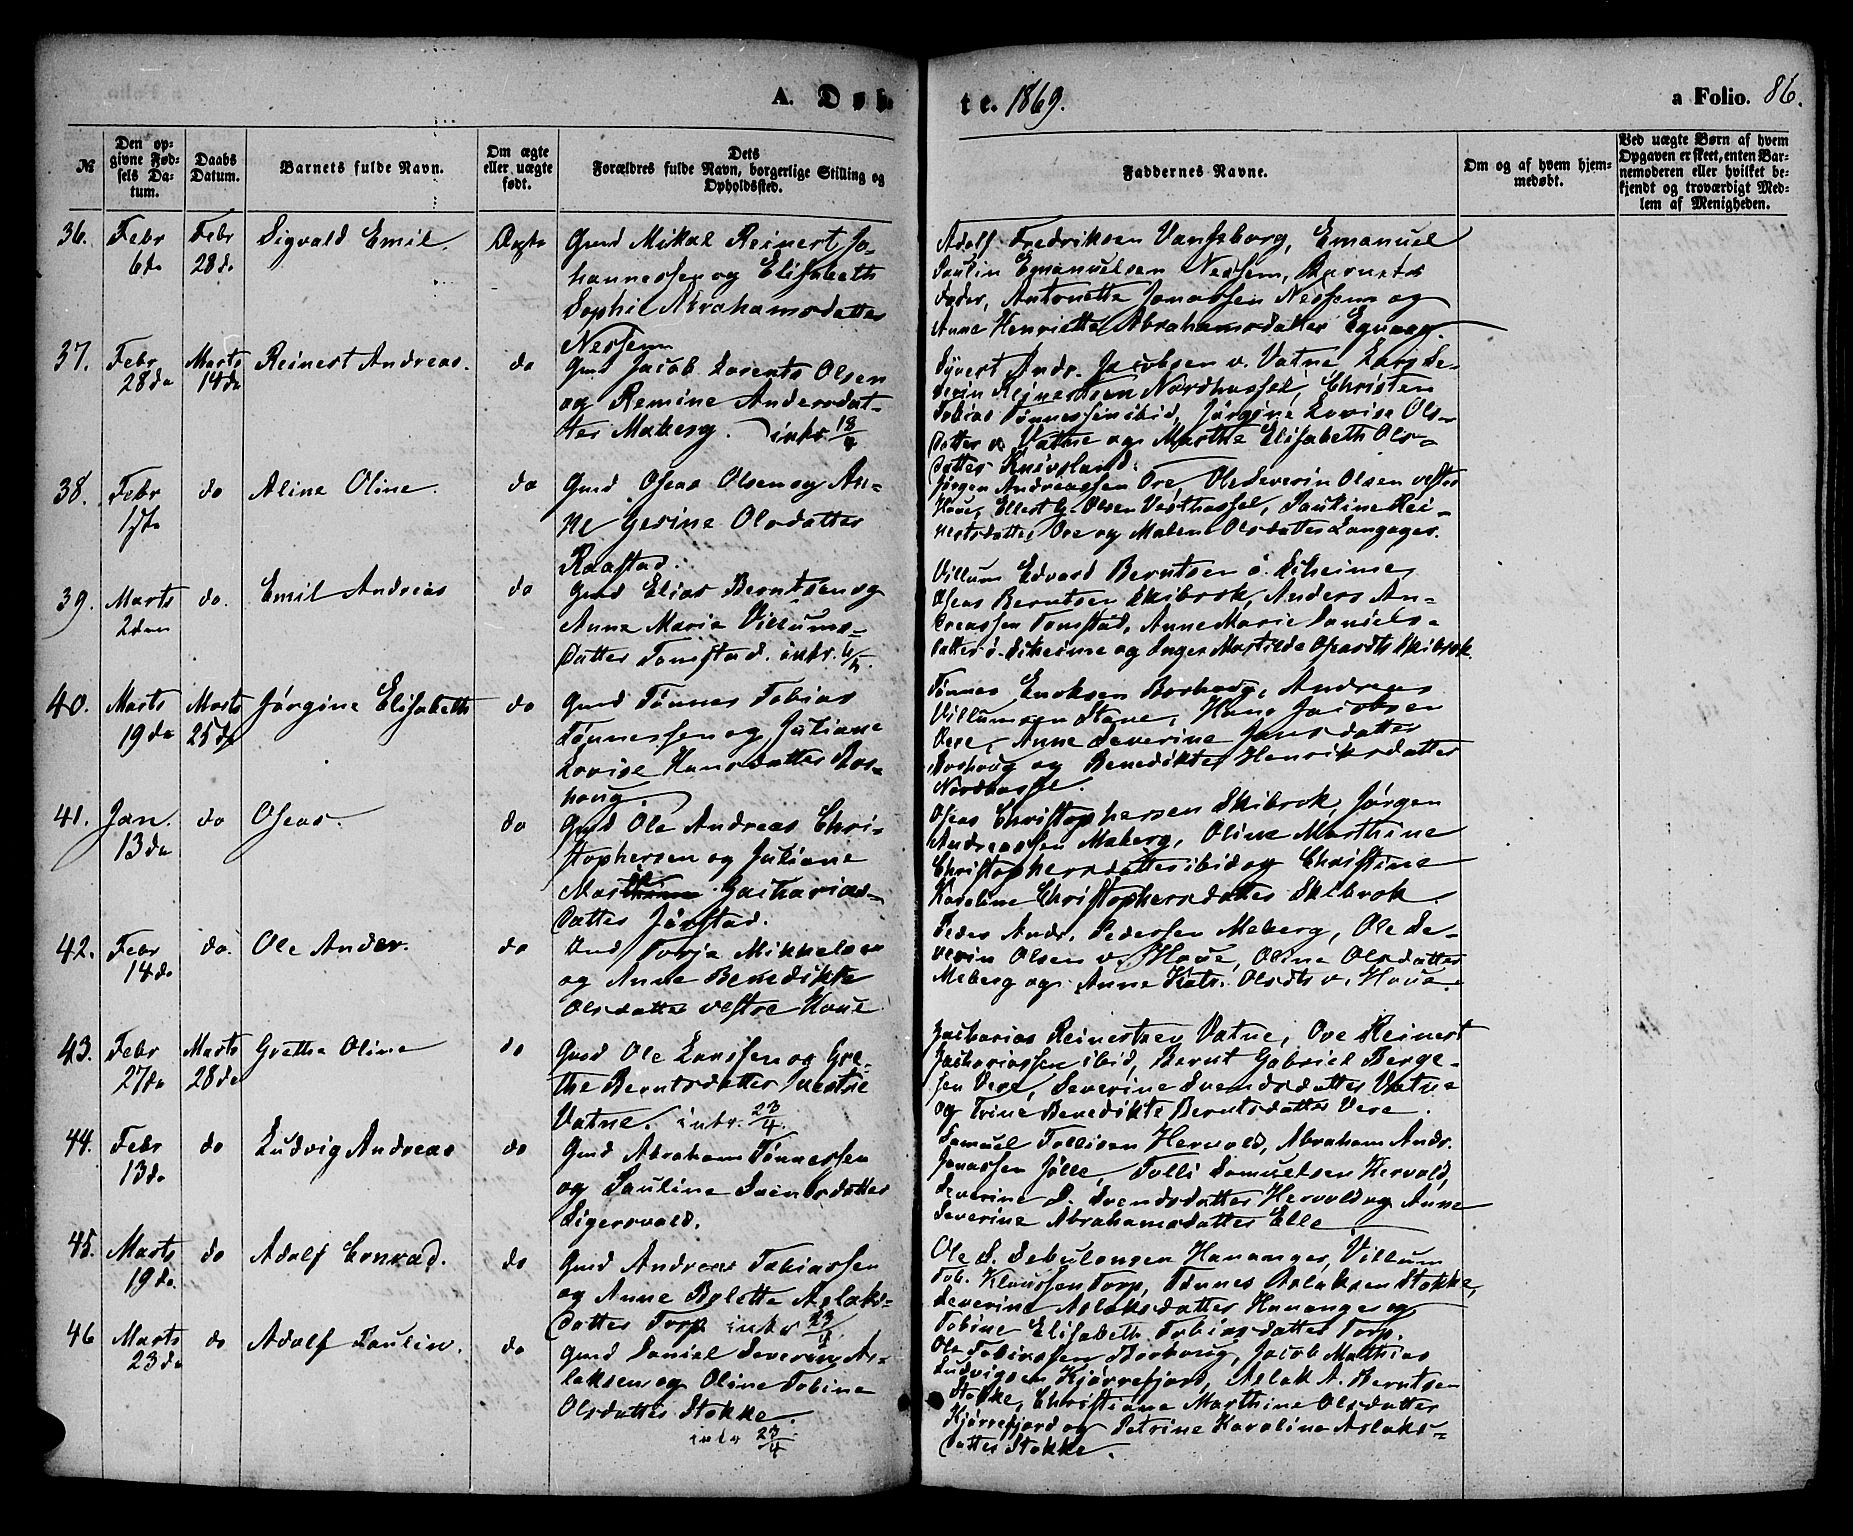 A. Døb
te. 1869.
a Folio. 86.
№
Den op-
givne Fød-
sels Da-
tum.
Daabs
Datum.
Barnets fulde Navn.
Om ægte
eller uægte
født.
Dets
Forældres fulde Navn, borgerlige Stilling og
Opholdssted.
Faddernes Navne.
Om og af hvem hjem-
medøbt.
Ved uægte Børn af hvem
Opgaven er skeet, enten Bar-
nemoderen eller hvilket be-
kjendt og troværdigt Med-
lem af Menigheden.
36. Febr 6de
Febr 28de
Sigvald Emil
Ægte
Gmd Mikal Reinert Jo-
hannessen og Elisabeth
Sophie Abrahamsdatter
Nesheim
Adolf Fredriksen Vansborg, Emanuel
Paulin Emanuelsen Neshem, Barnets
Fader, Antonette Jonassen Neshem og
Anne Henriette Abrahamsdatter
37. Febr 28de
Marts 14de
Reinert Andreas.
do
Gmd Jacob Lorents Olsen
og Remine Andersdat-
ter Meberg. intr. 18/4
Syvert Andr. Jacobsen v. Vatne, Lars Se-
verin Reinertsen Nordhassel, Christen
Tobias Tønnessen ibid, Jørgine Lovise Ols-
datter v. Vatne og Marthe Elisabeth Ols-
datter Knivsland.
38. Febr 17de
do
Aline Oline.
do
Gmd Oseas Olsen og An-
ne Gesine Olsdatter
Raastad.
Jørgen Andreassen Ore, Ole Severin Olsen vestre
Houe, Ellert G. Olsen Vesthassel, Paulina Rei-
nertsdatter Ore og Malene Olsdatter Langager.
39. Marts 2den
do.
Emil Andreas
do
Gmd Elias Berntsen og
Anne Maria Villums-
datter Tomstad. intr.
Villum Edvard Berntsen ø. Eikeime,
Oseas Berntsen Skibrok, Anders An-
dreassen Tomstad, Anne Marie Daniels-
datter ø. Eikeime og Inger Mathilde Oseasdtr Skibrok.
40. Marts 19de
Marts 25de
Jørgine Elisabeth
do
Gmd Tønnes Tobias
Tønnessen og Juliane
Lovise Hansdatter Bor-
houg.
Tønnes Enoksen Borhoug, Andreas
Villumsen Stave, Hans Jacobsen
Vere, Anne Severine Jansdatter
Borhoug og Benedikte Henriksdatter
Nordhassel.
41. Jan. 13de
do
Oseas.
do
Gmd Ole Andreas Chri-
stophersen og Juliane
Zacharias-
datter Jørstad.
Oseas Christophersen Skibrok, Jørgen
Andreassen Meberg, Oline Marthine
Christophersdatter ibid og Christine
Karoline Christophersdatter Skibrok.
42. Febr 14de
do.
Ole Ander.
do
Gmd Torje Mikkelsen
og Anne Benedikte
Olsdatter vestre Houe
Peder Andr. Pedersen Meberg, Ole Se-
verin Olsen v. Houe, Oline Olsdatter
Meberg og Anne Katr. Olsdtr v. Houe.
43. Febr 27de
Marts 28de
Grethe Oline
do
Gmd Ole Larssen og Gre-
the Berntsdatter vestre
Vatne. intr. 23/4.
Zacharias Reinertsen Vatne, Ove Reinert
Zachariassen ibid, Bernt Gabriel Berge-
sen Vere, Severine Svendsdatter Vatne
og Trine Benedikte Berntsdatter Vere.
44. Febr 13de
do
Ludvig Andreas
do
Gmd Abraham Tønnessen
og Pauline Svendsdatter
Sigersvold.
Samuel Tollisen Hervold, Abraham Andr.
Jonassen Jølle, Tolli Samuelsen Hervold,
Severine S. Svendsdatter Hervold og Anne
Severine Abrahamsdatter Elle
45. Marts 19de
do
Adolf Conrad.
do
Gmd Andreas Tobiassen
og Anne Bolette Aslaks-
datter Torp intr 23/4.
Ole S. Sebulonsen Hananger, Villum
Tob. Klaussen Torp, Tønnes Aslaksen Stokke,
Severine Aslaksdatter Hananger og
Tobine Elisabeth Tobiasdatter Torp.
46 Marts 23de
do
Adolf Paulin.
do
Gmd Daniel Severin As-
laksen og Oline Tobine
Olsdatter Stokke.
intr 23/4
Ole Tobiassen Borhoug, Jacob Matthias
Ludvigsen Kjørrefjord, Aslak A. Berntsen
Stokke, Christiane Marthine Olsdatter
Kjørrefjord og Petrine Karoline Aslaks-
datter Stokke.